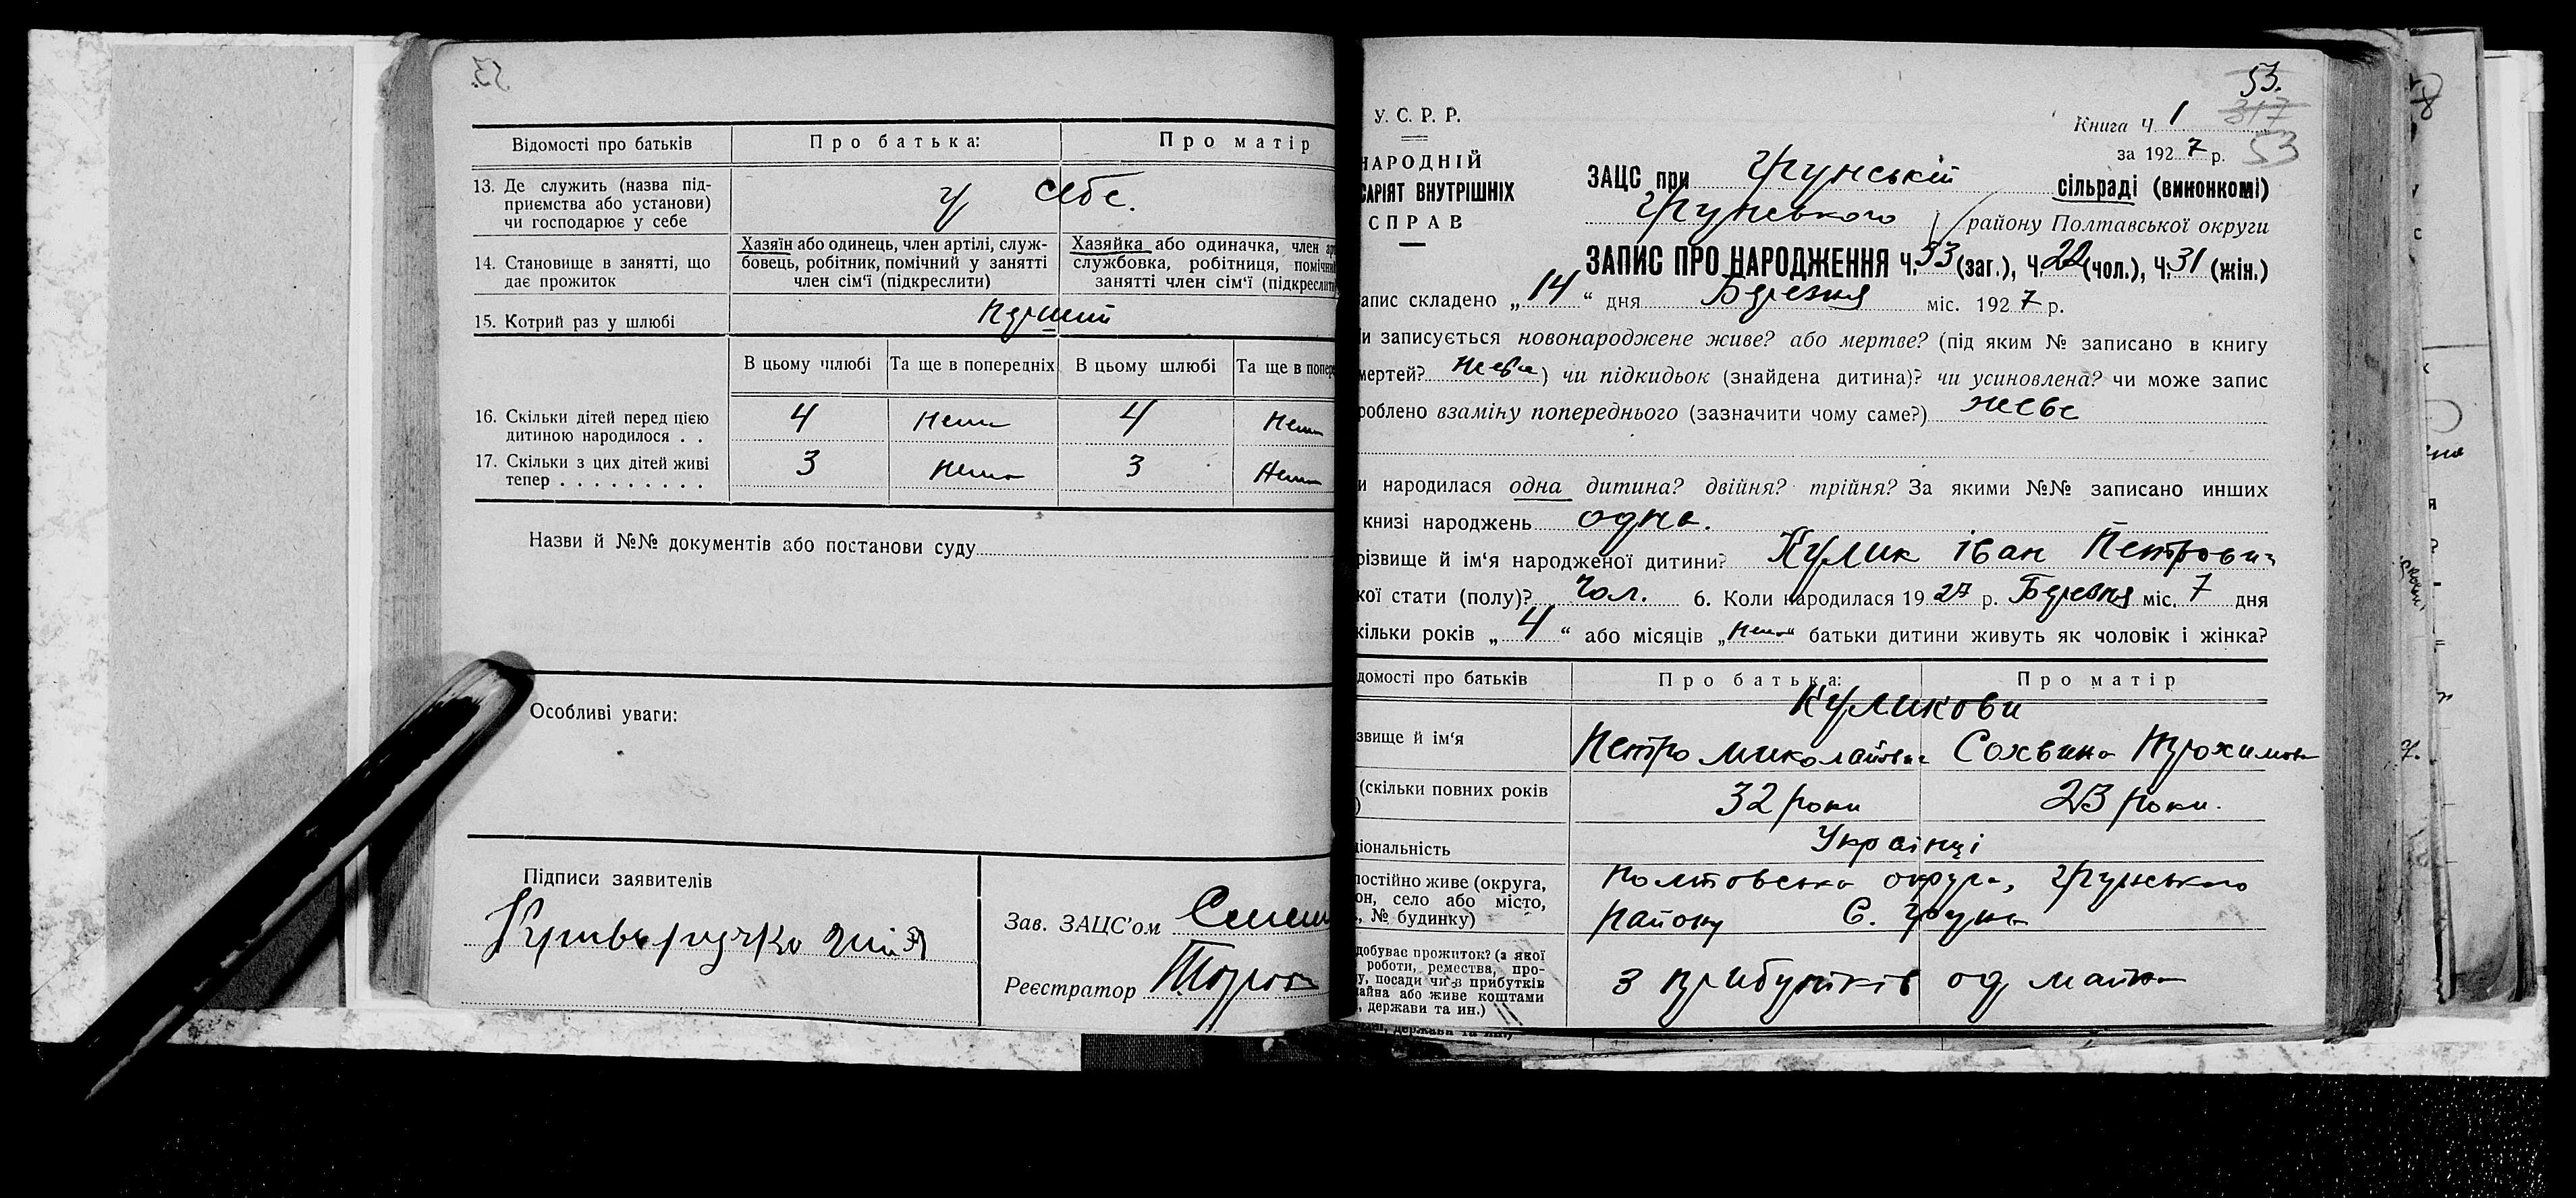 53.
Відомості про батьків
Про батька:
Про матір
13. Де служить (назва під-
приємства або установи)
чи господарює у себе
у себе.
14. Становище в занятті, що
дає прожиток
Хазяїн або одинець, член артілі, служ-
бовець, робітник, помічний у занятті
член сім'ї (підкреслити)
Хазяйка або одиначка, член ар
службовка, робітниця, помічни
занятті член сім'ї (підкреслити
15. Котрий раз у шлюбі
перший
В цьому шлюбі
Та ще в попередніх
В цьому шлюбі
Та ще в попере
16. Скільки дітей перед цією
дитиною народилося . .
4 нема 4 нема
17. Скільки з цих дітей живі
тепер . . . . . . . . .
3 нема 3 нема
Назви й №№ документів або постанови суду
Особливі уваги:
Підписи заявителів
Зав. ЗАЦС'ом
Реєстратор
53.
317
53
У. С. Р. Р.
Книга Ч. 1
за 1927 р.
НАРОДНІЙ
САРІЯТ ВНУТРІШНІХ
СПРАВ
ЗАЦС при Грунській сільраді (виконкомі)
Грунського району Полтавської округи
ЗАПИС ПРО НАРОДЖЕННЯ Ч. 53 (заг.), Ч. 22 (чол.), Ч. 31 (жін.)
апис складено „14“ дня Березня міс. 1927 р.
и записується новонароджене живе? або мертве? (під яким № записано в книгу
мертей? живе) чи підкидьок (знайдена дитина)? чи усиновлена? чи може запис
роблено взаміну попереднього (зазначити чому саме?) живе
и народилася одна дитина? двійня? трійня? За якими №№ записано инших
книзі народжень одна.
різвище й ім'я народженої дитини? Кулик Іван Петрович
кої стати (полу)? Чол. 6. Коли народилася 1927 р. Березня міс. 7 дня
кільки років „4“ або місяців „нема“ батьки дитини живуть як чоловік і жінка?
домості про батьків
Про батька:
Про матір
Куликови
звище й ім'я
Петро Миколайович Сохвина Трохимовна
(скільки повних років
)
32 роки 23 роки.
ціональність
Українці
постійно живе (округа,
он, село або місто,
, № будинку)
Полтовська округа, Грунського
району С. Грунь
добуває прожиток? (з якої
роботи, ремества, про-
у, посади чи з прибутків
айна або живе коштами
, держави та ин.)
з прибутків од майна